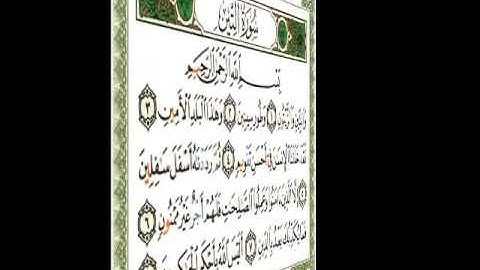 سُورَةُ التِّينِ
بِسْمِ اللَّهِ الرَّحْمَٰنِ الرَّحِيمِ
وَالتِّينِ وَالزَّيْتُونِ ١ وَطُورِ سِينِينَ ٢ وَهَٰذَا الْبَلَدِ الْأَمِينِ ٣
لَقَدْ خَلَقْنَا الْإِنسَانَ فِي أَحْسَنِ تَقْوِيمٍ ٤ ثُمَّ رَدَدْنَٰهُ أَسْفَلَ سَٰفِلِينَ
٥ إِلَّا الَّذِينَ ءَامَنُوا وَعَمِلُوا الصَّٰلِحَٰتِ فَلَهُمْ أَجْرٌ غَيْرُ مَمْنُونٍ ٦
فَمَا يُكَذِّبُكَ بَعْدُ بِالدِّينِ ٧ أَلَيْسَ اللَّهُ بِأَحْكَمِ الْحَٰكِمِينَ